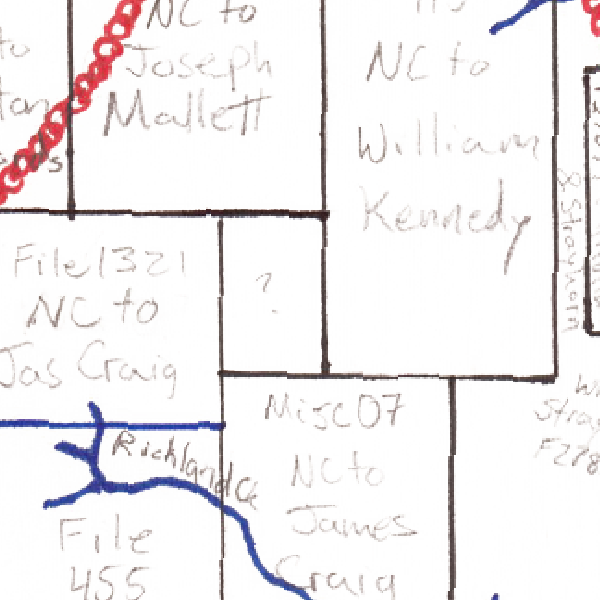 NC to
Joseph
Mallett
NC to
William
Kennedy
to
& Strayhorn
File 1321
NC to
Jas Craig
?
Misc07
NC to
James
Craig
Richland Ck
File
455
F278